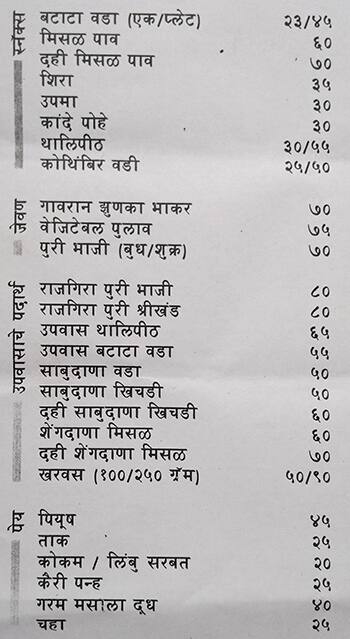 स्नॅक्स
बटाटा वडा (एक/प्लेट) २३/४५
मिसळ पाव ६०
दही मिसळ पाव ७०
शिरा ३५
उपमा ३०
कांदे पोहे ३०
थालिपीठ ३०/५५
कोथिंबिर वडी २५/५०
जेवण
गावरान झुणका भाकर ७०
वेजिटेबल पुलाव ७५
पुरी भाजी (बुध/शुक्र) ७०
उपवासाचे पदार्थ
राजगिरा पुरी भाजी ८०
राजगिरा पुरी श्रीखंड ८०
उपवास थालिपीठ ६५
उपवास बटाटा वडा ५५
साबुदाणा वडा ५०
साबुदाणा खिचडी ५०
दही साबुदाणा खिचडी ६०
शेंगदाणा मिसळ ६०
दही शेंगदाणा मिसळ ७०
खरवस (१००/२५० ग्रॅम) ५०/९०
पेय
पियूष ४५
ताक २५
कोकम / लिंबु सरबत २०
कैरी पन्ह २५
गरम मसाला दूध ४०
चहा २५